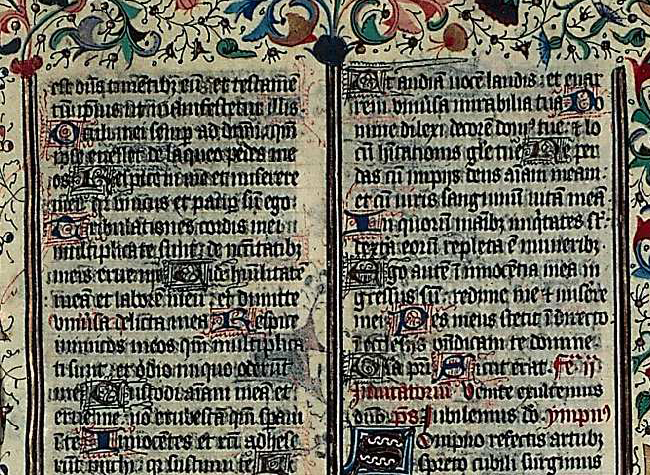 est dn̄s timentibz eū: et testame
tū ip̄ius ut manifestetur illis.
Oculi mei semp ad dn̄m: qm̄
ip̄e euellet de laqueo pedes me
os Respice in me et miserere
mei: qr vnicus et paup sū ego
Tribulationes cordis mei
multiplicate sunt: de nc̄itatibz
meis erue me Vide hūilitatē
meā et laborē meū: et dimitte
vniūsa delicta mea Respice
inimicos meos qm̄ multiplica
ti sunt: et odio iniquo oderūt
me Custodi aīam meā et
erue me: nō erubescā qm̄ spaui
ī te Innocētes et rcī adhese
rūt michi: qr sustinui te
Ut audiā uocē laudis: et enar
rem vniūsa mirabilia tua Do
mine dilexi decorē domꝰ tue: et lo
cū hītationis glē tue Ne per
das cū impijs deus aīam meam:
et cū uiris sanguinū uitā meā
In quorū māibz iniqtates st:
dextera eorū repleta ē muneribz
Ego autē ī innocētia mea in
gressus sū: redime me et misere
mei Pes meus stetit ī directo:
ī eccl̄ijs bn̄dicam te domine.
Gl̄a pri Sicut erat. Fe ij
Inuitatoriū Venite exultemus
dn̄o p̄s Iubilemus do. ympnꝰ
Sompno refectis artubz
spreto cubili surgimus